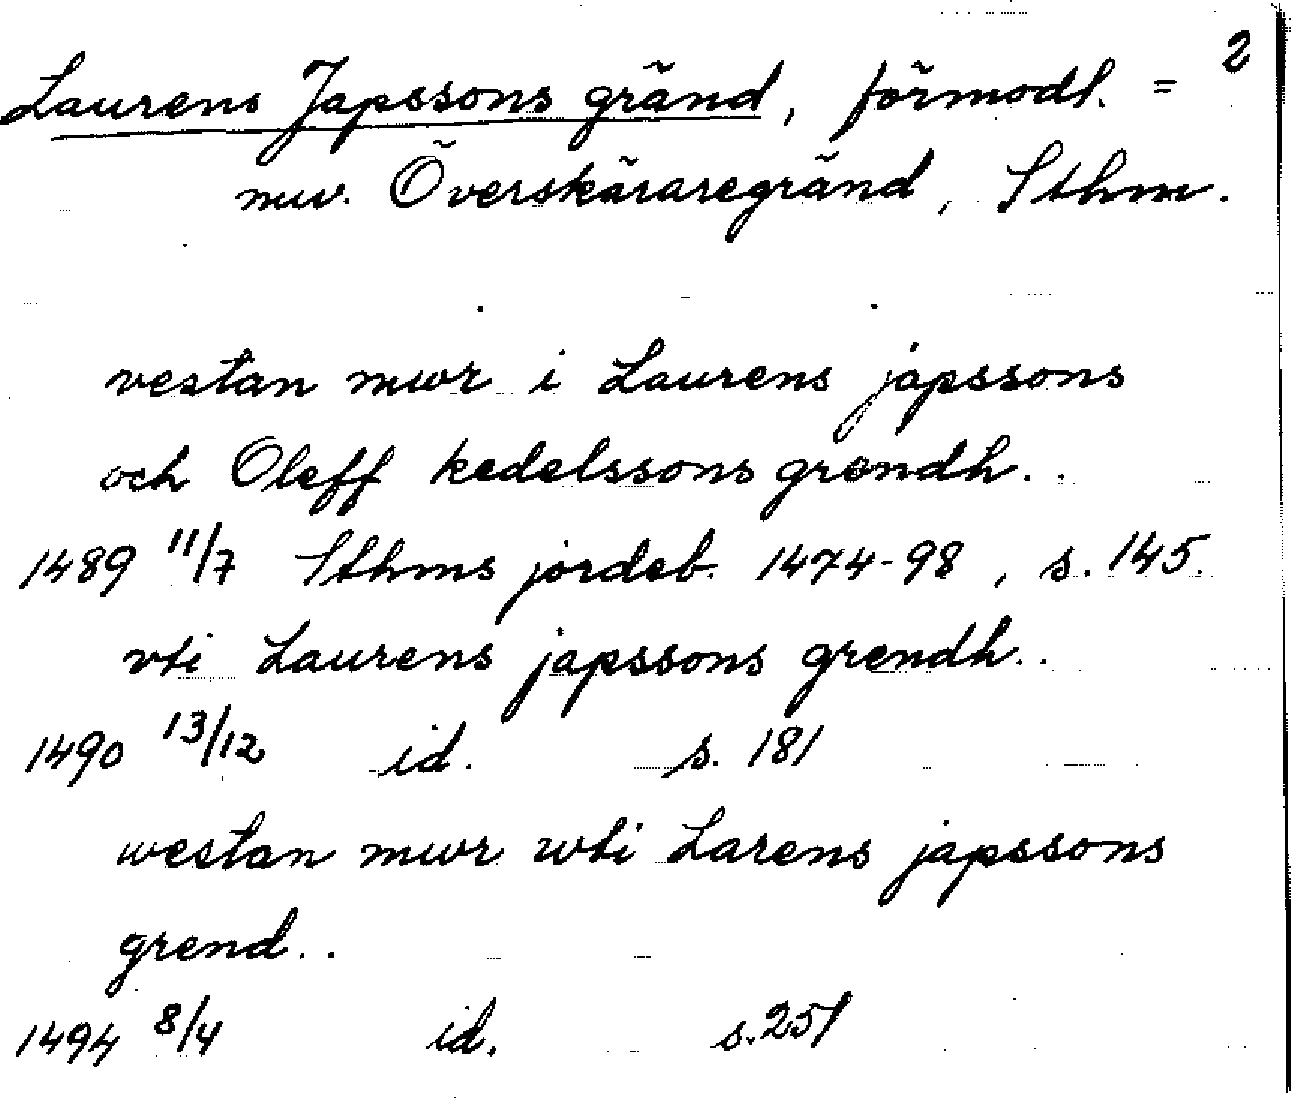 2
Laurens Japssons gränd, förmodl. =
nuv. Överskäraregränd, Sthm.
vestan mwr i Laurens japssons
och Oleff kedelssons grendh..
1489 11/7 Sthms jordeb. 1474-98, s. 145.
vti Laurens japssons grendh..
1490 13/12 id. s. 181
westan mwr wti Larens japssons
grend..
1494 8/4 id. s. 251